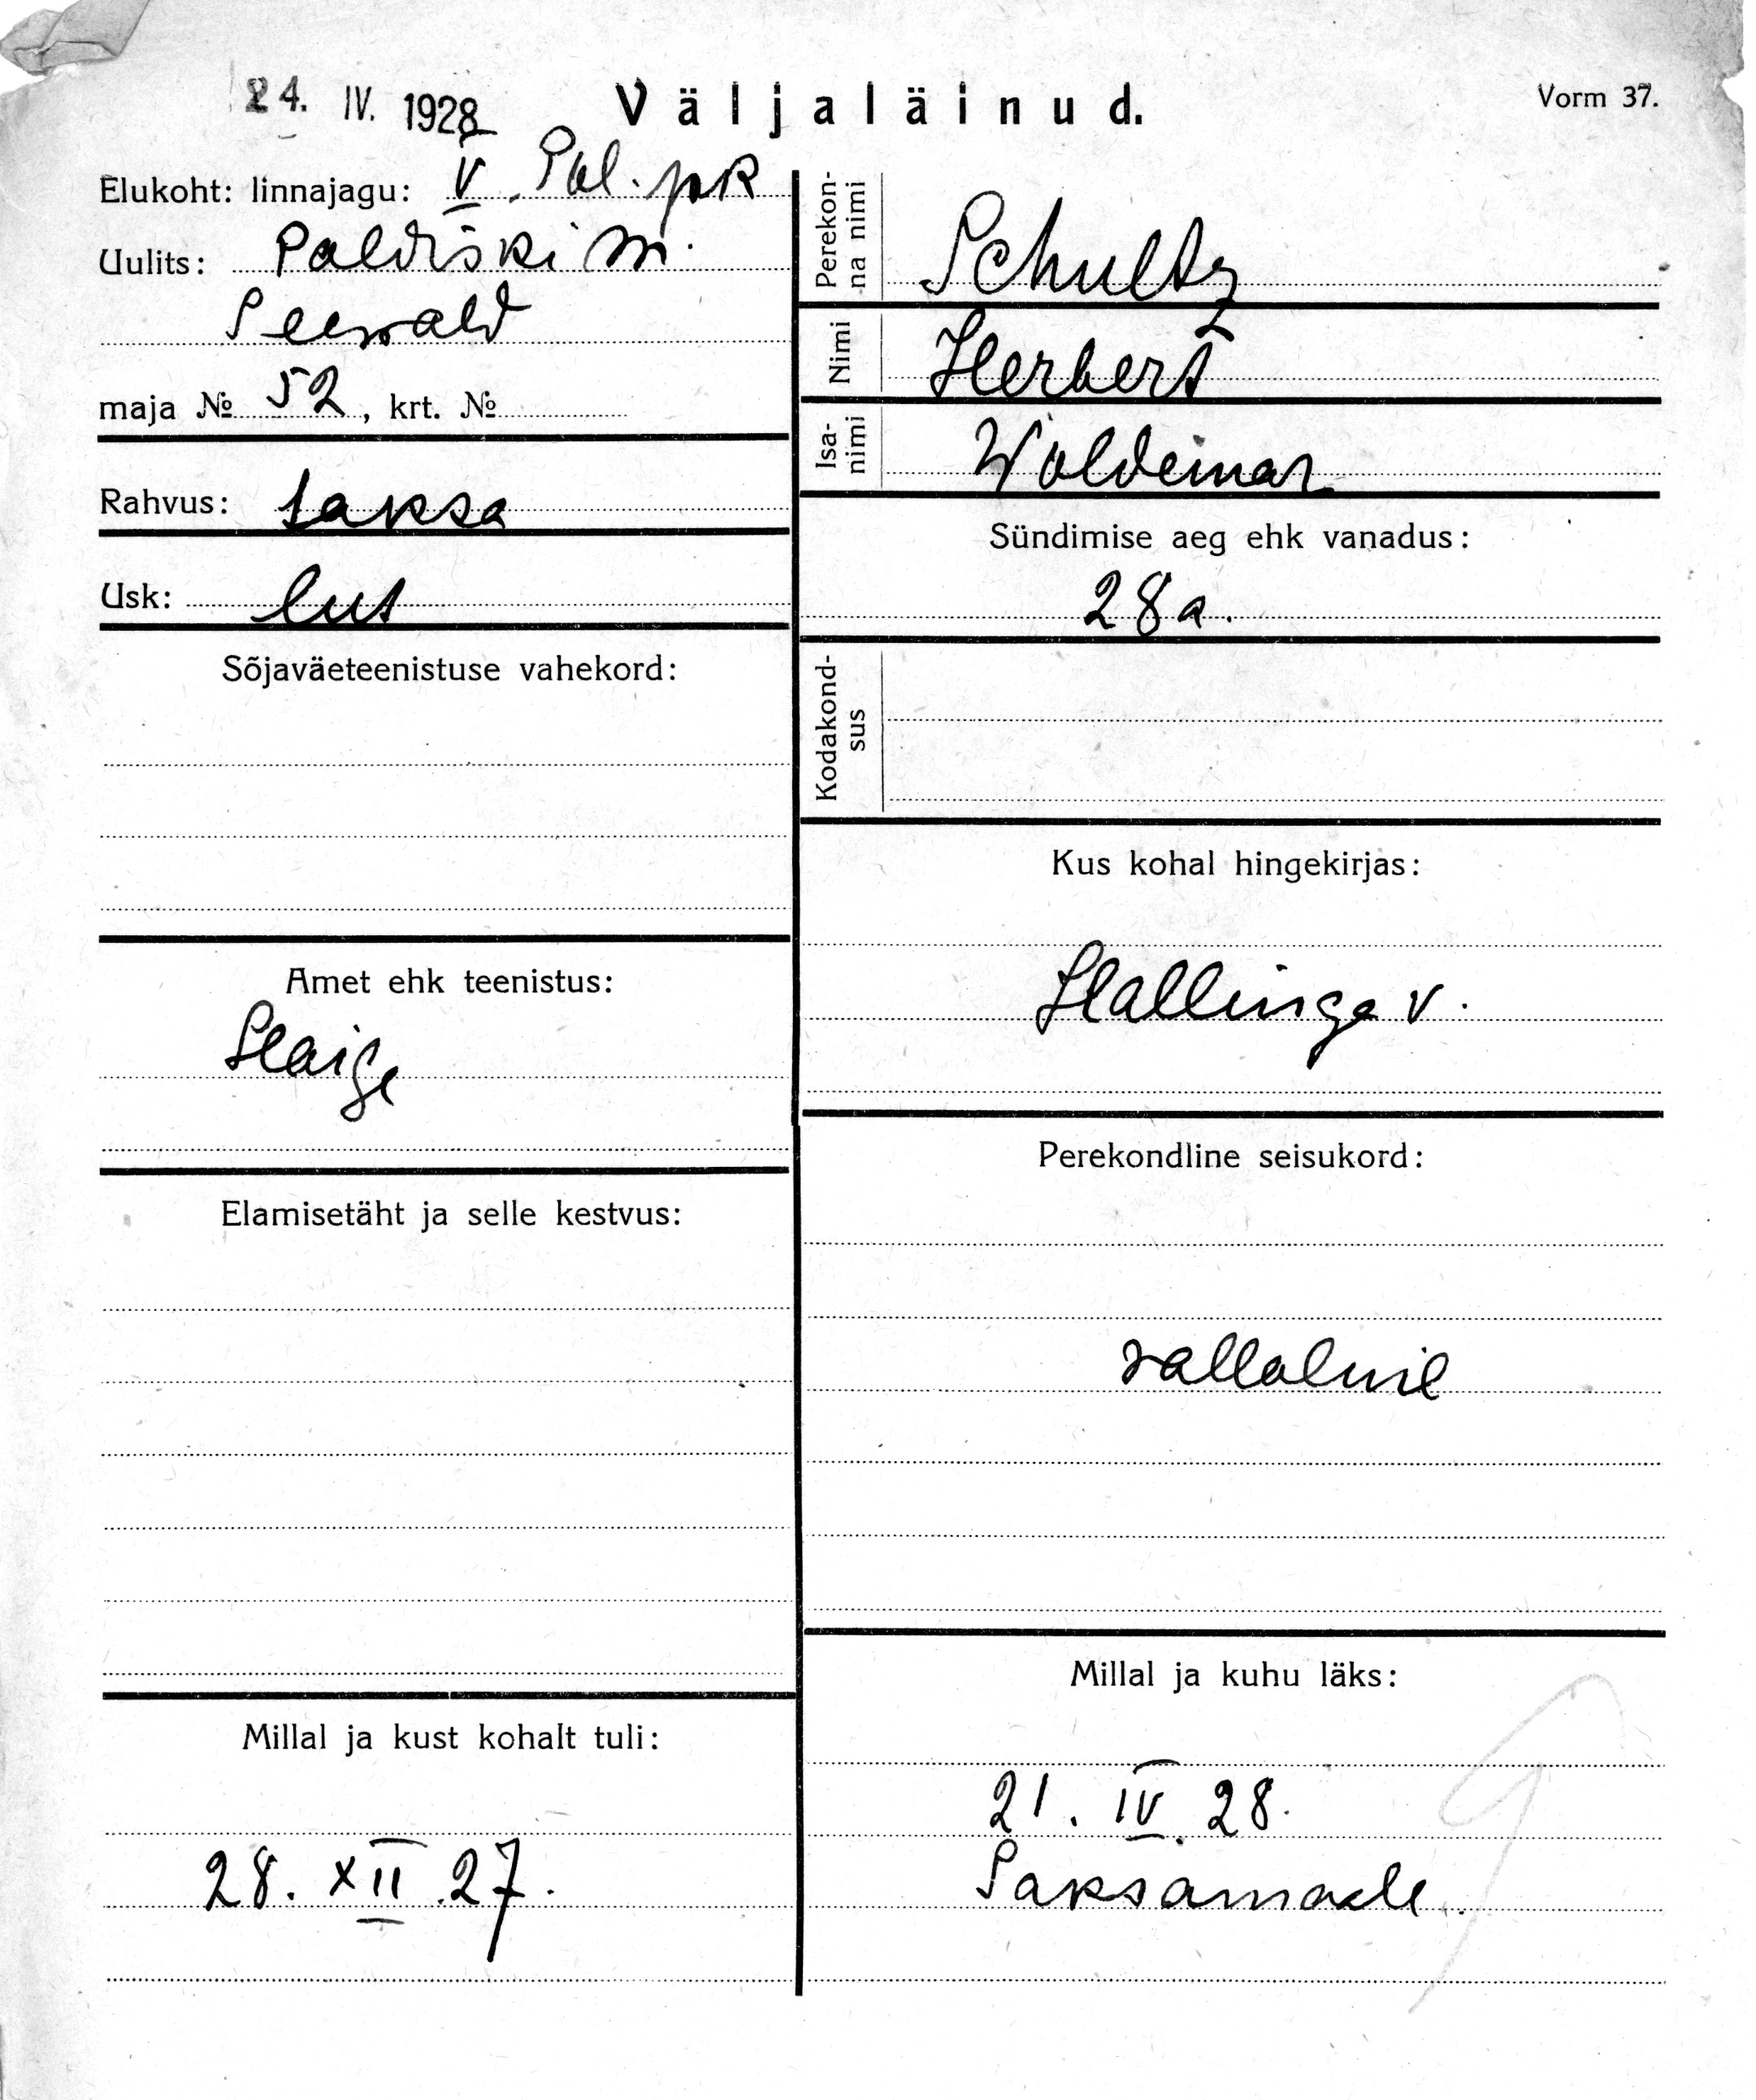 24. IV. 1928
Väljaläinud.
Vorm 37.
Elukoht: linnajagu: V. Pol. pk
Uulits: Paldiski m.
Seewald
maja № 52, krt. №
Rahvus: saksa
Usk: lut
Sõjaväeteenistuse vahekord:
Amet ehk teenistus:
Haige
Elamisetäht ja selle kestvus:
Millal ja kust kohalt tuli:
28. XII. 27.
Perekon-
na nimi
Schultz
Nimi
Herbert
Isa-
nimi
Woldemar
Sündimise aeg ehk vanadus:
28 a.
Kodakond-
sus
Kus kohal hingekirjas:
Hallinga v.
Perekondline seisukord:
vallaline
Millal ja kuhu läks:
21. IV. 28.
Saksamaale.